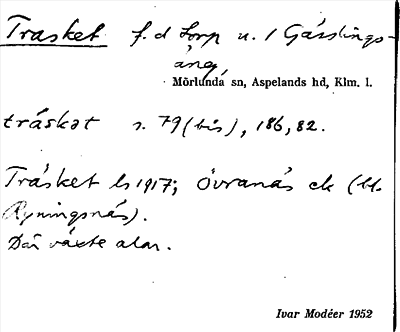 Trasket f.d torp u. 1 Gässlings-
äng,
Mörlunda sn, Aspelands hd, Klm. l.
träskət s. 79 (bis), 186, 82.
Träsket ls 1917; Övranäs ek (bl.
Ryningsnäs).
Där växte alar.
Ivar Modéer 1952